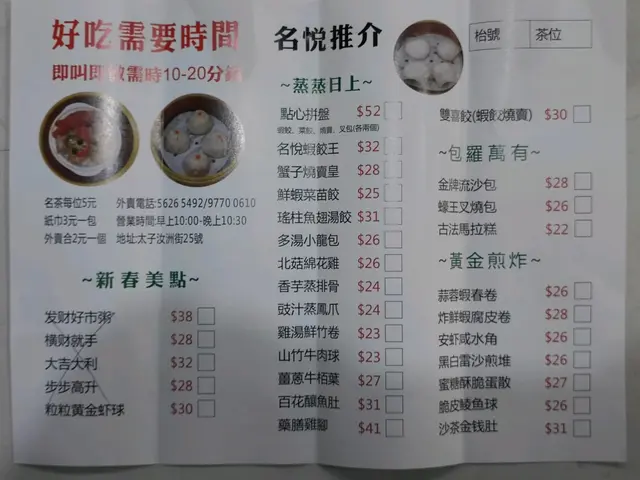 好吃需要時間
即叫即做需時10-20分鐘
名茶每位5元 外賣電話:5626 5492/9770 0610
紙巾3元一包 營業時間:早上10:00-晚上10:30
外賣合2元一個 地址:太子汝洲街25號
~新春美點~
发财好市粥 $38
横财就手 $28
大吉大利 $32
步步高升 $28
粒粒黄金虾球 $30
名悦推介
~蒸蒸日上~
點心拼盤 $52
蝦餃、菜餃、燒賣、叉包(各兩個)
名悦蝦餃王 $32
蟹子燒賣皇 $28
鮮蝦菜苗餃 $25
瑤柱魚翅湯餃 $31
多湯小龍包 $26
北菇綿花雞 $26
香芋蒸排骨 $24
豉汁蒸鳳爪 $24
雞湯鮮竹卷 $23
山竹牛肉球 $23
薑蔥牛栢葉 $27
百花釀魚肚 $31
藥膳雞腳 $41
枱號 茶位
雙喜餃(蝦餃,燒賣) $30
~包羅萬有~
金牌流沙包 $28
蠔王叉燒包 $26
古法馬拉糕 $22
~黃金煎炸~
蒜蓉蝦春卷 $26
炸鮮蝦腐皮卷 $28
安虾咸水角 $26
黑白雷沙煎堆 $26
蜜糖酥脆蛋散 $27
脆皮鲮鱼球 $26
沙茶金钱肚 $31